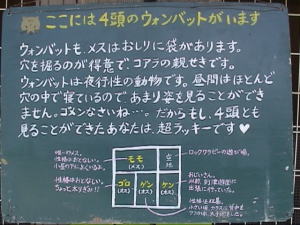 ここには4頭のウォンバットがいます
ウォンバットも、メスはおしりに袋があります。
穴を掘るのが得意で、コアラの親せきです。
ウォンバットは夜行性の動物です。昼間はほとんど
穴の中で寝ているので あまり姿を見ることができ
ません。ゴメンなさいね…。だからもし、4頭とも
見ることができたあなたは、超ラッキーです♥
唯一のメス。
性格はおとなしい。
モモ
(メス)
空
ロックワラビーの遊び場。
性格はおとなしい。
ちょっと太りぎみ!!
ゴロ
(オス)
ゲン
(オス)
ケン
(オス)
おじいさん。